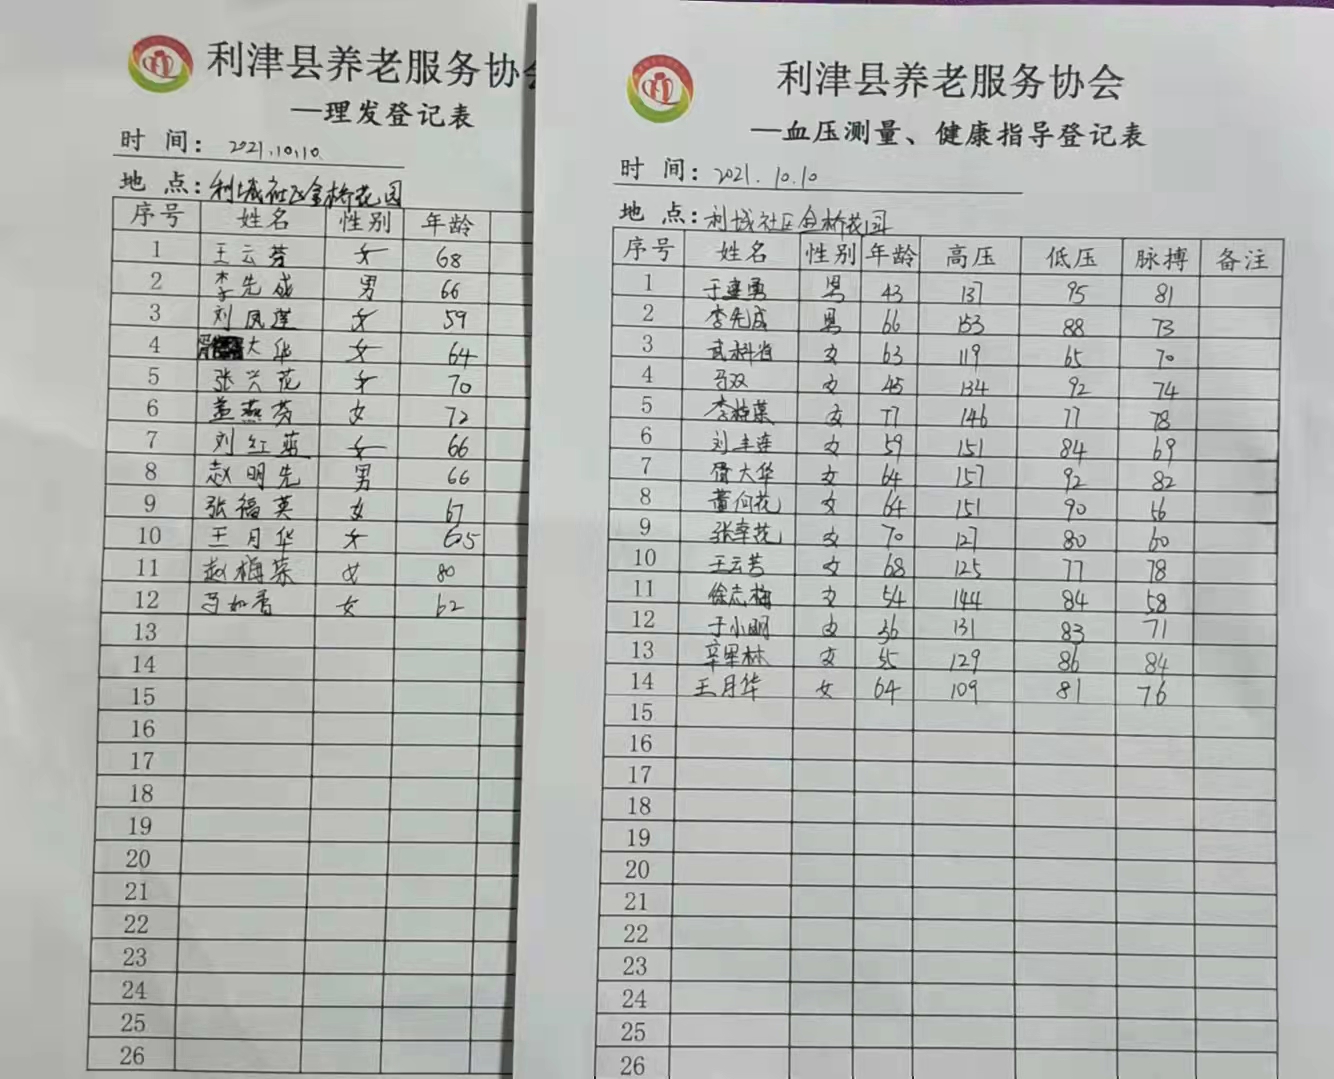 利津县养老服务协会
—理发登记表
时 间: 2021.10.10.
地 点: 利城社区金桥花园
序号 姓名 性别 年龄
1 王云芳 女 68
2 李先成 男 66
3 刘凤莲 女 59
4 大华 女 64
5 张兴花 女 70
6 盖燕芬 女 72
7 刘红蓝 女 66
8 赵明先 男 66
9 张福英 女 67
10 王月华 女 65
11 赵梅荣 女 80
12 马如香 女 62
13
14
15
16
17
18
19
20
21
22
23
24
25
26
利津县养老服务协会
—血压测量、健康指导登记表
时 间: 2021.10.10
地 点: 利城社区金桥花园
序号 姓名 性别 年龄 高压 低压 脉搏 备注
1 于建勇 男 43 137 95 81
2 李先成 男 66 153 88 73
3 女 63 119 65 70
4 马双 女 45 134 92 74
5 李梅荣 女 77 146 77 78
6 刘丰莲 女 59 151 84 69
7 大华 女 64 157 92 82
8 董向花 女 64 151 90 56
9 张幸花 女 70 127 80 60
10 王云芳 女 68 125 77 78
11 徐志梅 女 54 144 84 58
12 于小明 女 36 131 83 71
13 辛翠林 女 55 129 86 84
14 王月华 女 64 109 81 76
15
16
17
18
19
20
21
22
23
24
25
26